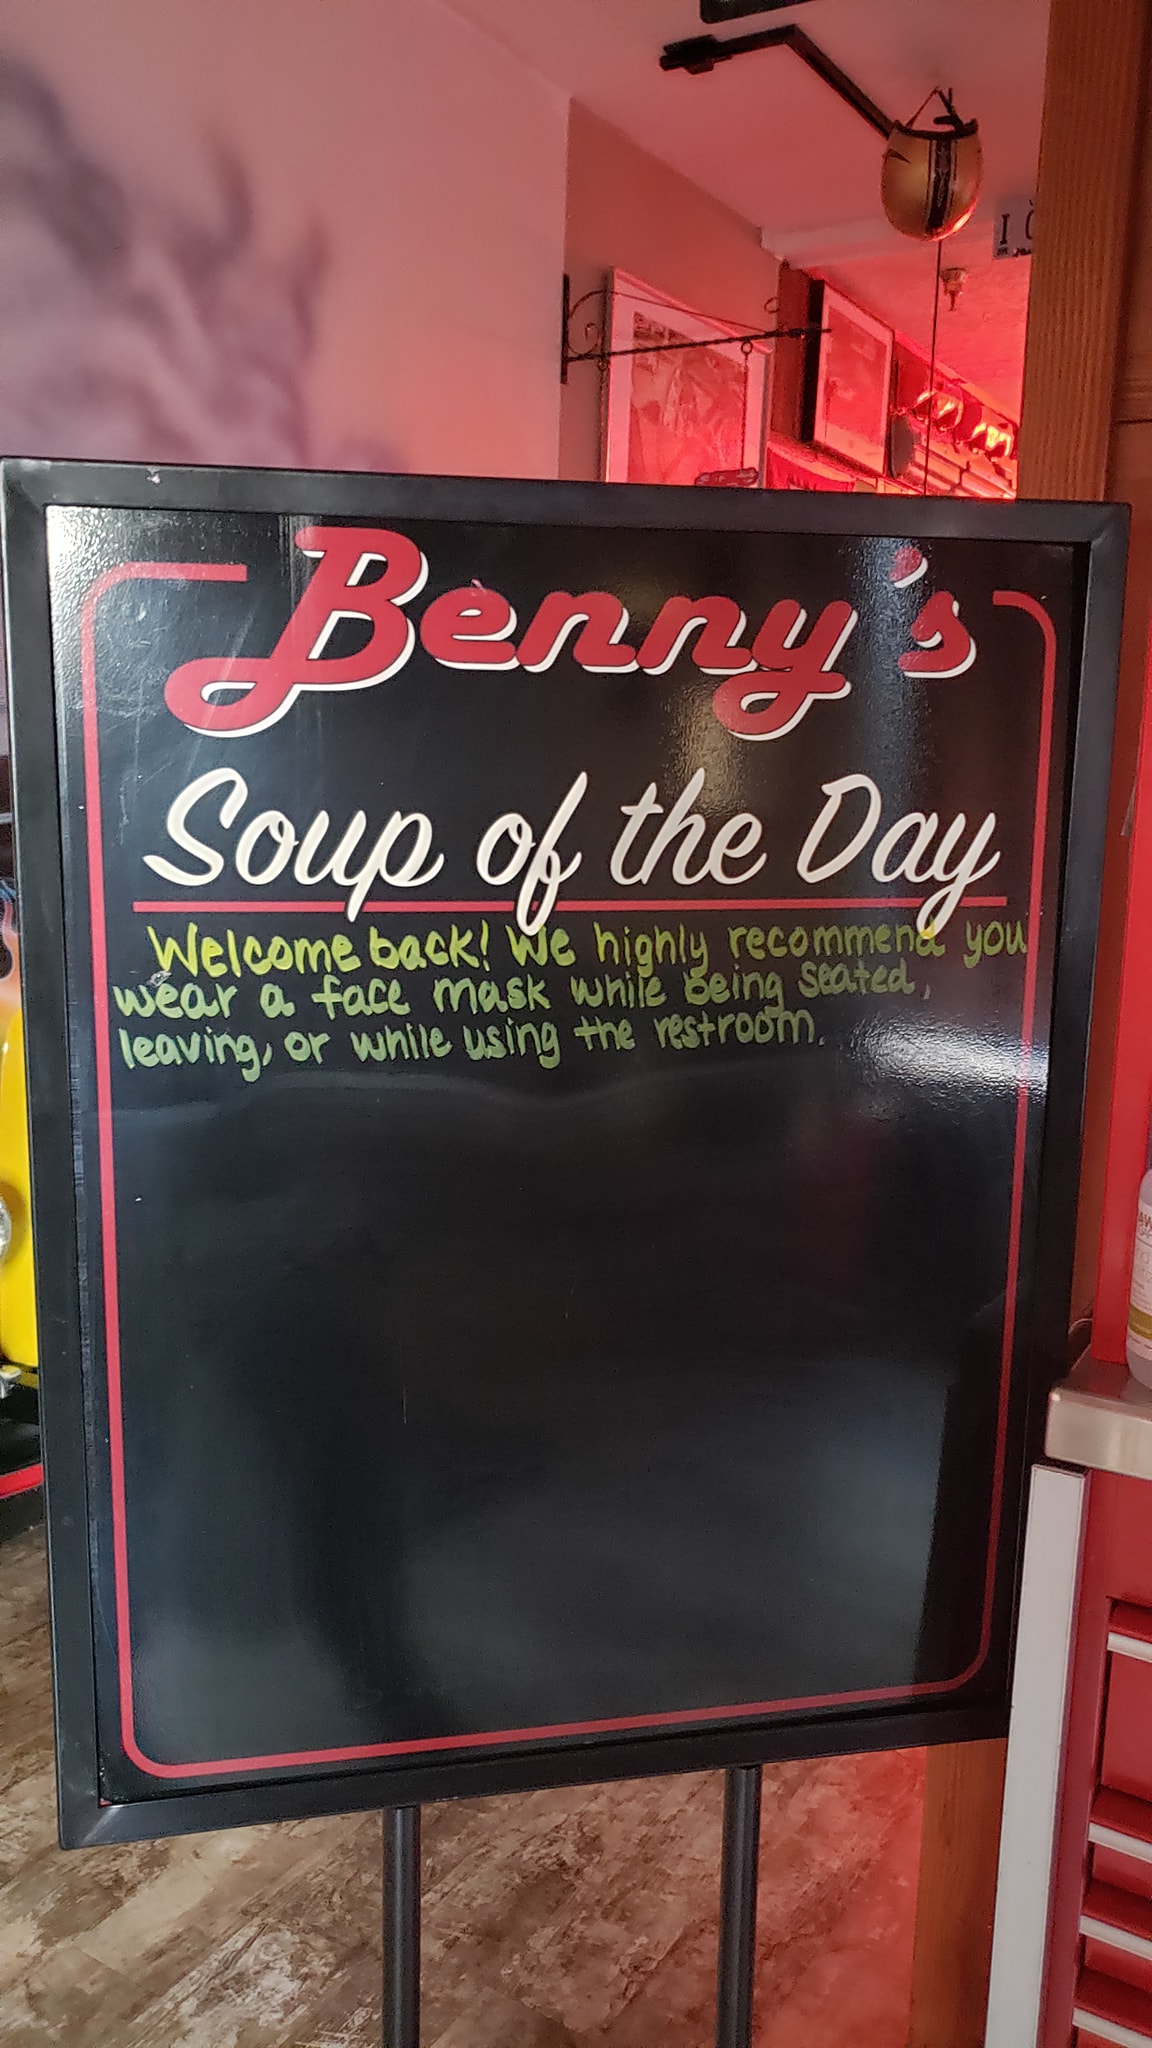 Benny's
Soup of the Day
Welcome back! We highly recommend you
wear a face mask while being seated,
leaving, or while using the restroom.